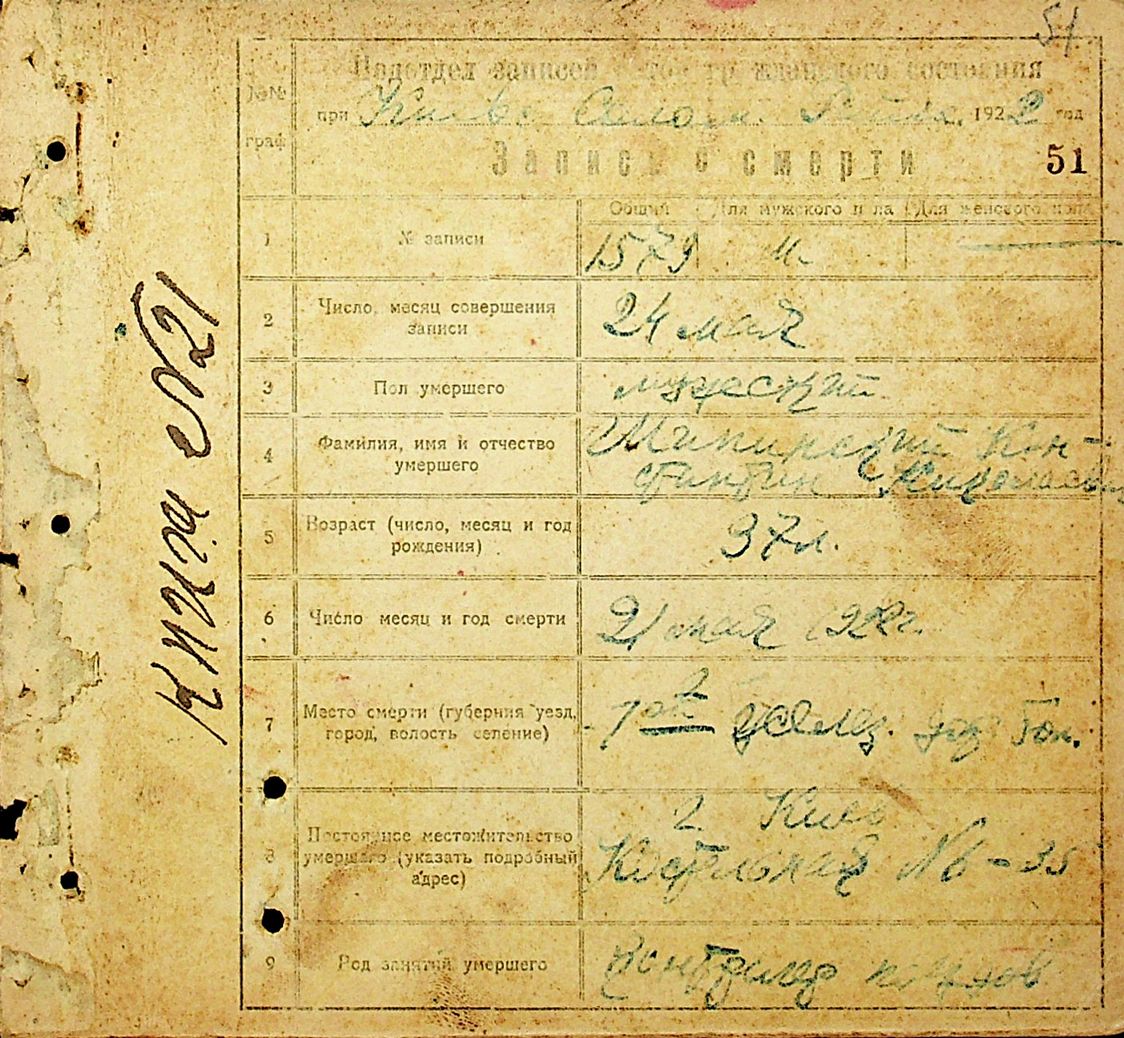 51
Подотдел записей актов гражданского состояния
№№ граф
при Киево Солом. 1922 год
Запись о смерти 51
Общий Для мужского пола Для женского пола
1 № записи 1579 м.
2 Число, месяц совершения записи 24 мая
3 Пол умершего мужеский
4 Фамилия, имя и отчество умершего Кон-
стантин Николаевич
5 Возраст (число, месяц и год рождения) 37 л.
6 Число месяц и год смерти 21 мая 1922 г.
7 Место смерти (губерния уезд, город, волость селение)
8 Постоянное местожительство умершего (указать подробный адрес) г. Киев
Костельная №6-35
9 Род занятий умершего
Книга №21